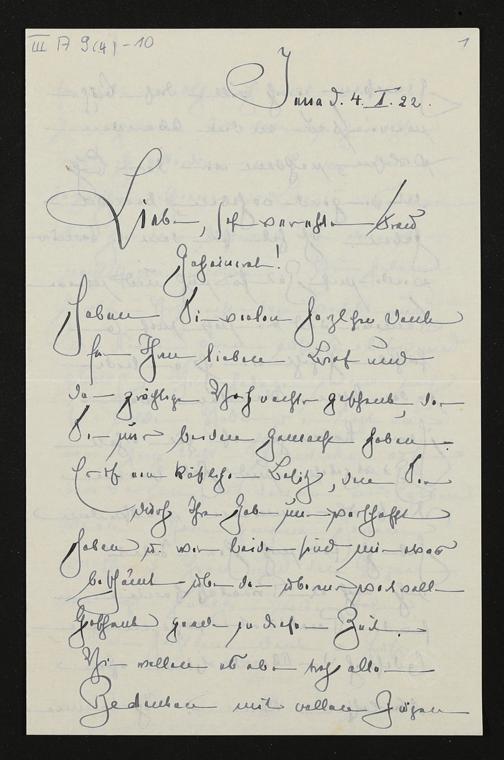 III A 9(4) - 10
1
Jena d. 4. I. 22.
Liebe, sehr verehrte Frau
Geheimrat!
Haben Sie vielen herzlichen Dank
für Ihren lieben Brief und
das prächtige Weihnachtsgeschenk, das
Sie uns beiden gemacht haben.
ein köstlicher Besitz, den Sie
durch Ihre Gabe uns verschafft
haben u. wir beide sind nur etwas
beschämt über das überaus wertvolle
Geschenk gerade zu dieser Zeit.
Wir wollen es aber trotz aller
Bedenken mit vollen Zügen